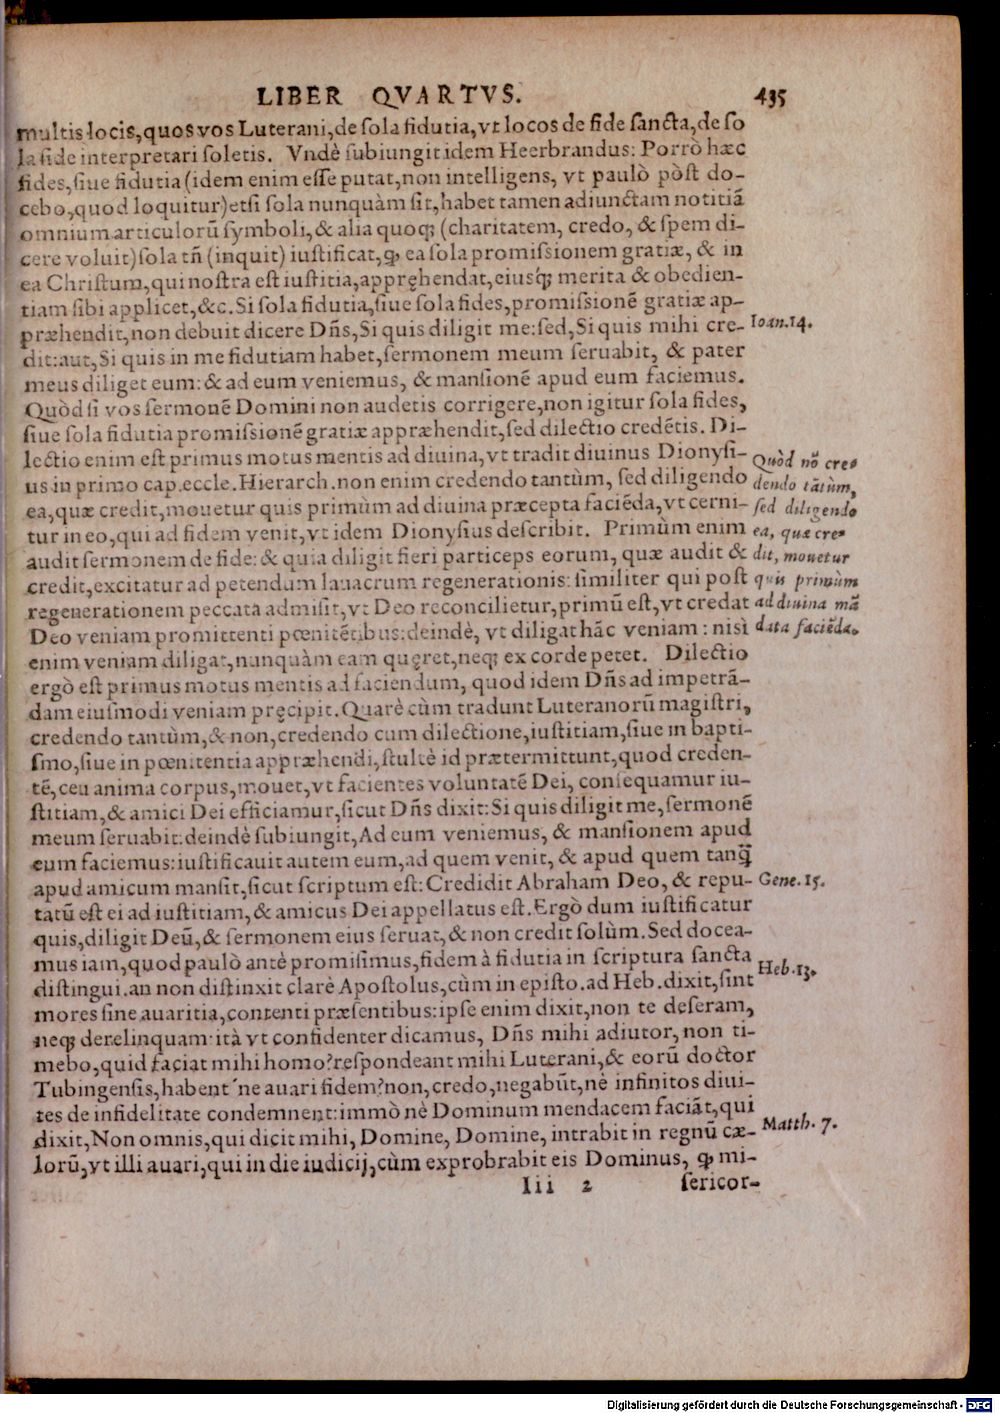 LIBER QVARTVS. 435
multis locis, quos vos Luterani, de sola fidutia, vt locos de fide sancta, de so
la fide interpretari soletis. Vndè subiungit idem Heerbrandus: Porrò hæc
fides, siue fidutia (idem enim esse putat, non intelligens, vt paulò pòst do-
cebo, quod loquitur) etsi sola nunquàm sit, habet tamen adiunctam notitiã
omnium articulorũ symboli, & alia quoq; (charitatem, credo, & spem di-
cere voluit) sola tñ (inquit) iustificat, ꝙ ea sola promissionem gratiæ, & in
ea Christum, qui nostra est iustitia, appręhendat, eiusq́; merita & obedien-
tiam sibi applicet, &c. Si sola fidutia, siue sola fides, promissionẽ gratiæ ap-
præhendit, non debuit dicere Dñs, Si quis diligit me: sed, Si quis mihi cre-
Ioan. 14.
dit: aut, Si quis in me fidutiam habet, sermonem meum seruabit, & pater
meus diliget eum: & ad eum veniemus, & mansionẽ apud eum faciemus.
Quòd si vos sermonẽ Domini non audetis corrigere, non igitur sola fides,
siue sola fidutia promissionẽ gratiæ appræhendit, sed dilectio credẽtis. Di-
lectio enim est primus motus mentis ad diuina, vt tradit diuinus Dionysi-
us in primo cap. eccle. Hierarch. non enim credendo tantùm, sed diligendo
ea, quæ credit, mouetur quis primùm ad diuina præcepta faciẽda, vt cerni-
tur in eo, qui ad fidem venit, vt idem Dionysius describit. Primùm enim
audit sermonem de fide: & quia diligit fieri particeps eorum, quæ audit &
credit, excitatur ad petendum lauacrum regenerationis: similiter qui post
regenerationem peccata admisit, vt Deo reconcilietur, primũ est, vt credat
Deo veniam promittenti pœnitẽtibus: deindè, vt diligat hãc veniam: nisi
Quòd nõ cre-
dendo tãtùm,
sed diligendo
ea, quæ cre-
dit, mouetur
quis primùm
ad diuina mã
data faciẽda.
enim veniam diligat, nunquàm eam quęret, neq; ex corde petet. Dilectio
ergò est primus motus mentis ad faciendum, quod idem Dñs ad impetrã-
dam eiusmodi veniam pręcipit. Quarè cùm tradunt Luteranorũ magistri,
credendo tantùm, & non, credendo cum dilectione, iustitiam, siue in bapti-
smo, siue in pœnitentia appræhendi, stultè id prætermittunt, quod creden-
tẽ, ceu anima corpus, mouet, vt facientes voluntatẽ Dei, consequamur iu-
stitiam, & amici Dei efficiamur, sicut Dñs dixit: Si quis diligit me, sermonẽ
meum seruabit: deindè subiungit, Ad eum veniemus, & mansionem apud
eum faciemus: iustificauit autem eum, ad quem venit, & apud quem tanq̃
apud amicum mansit, sicut scriptum est: Credidit Abraham Deo, & repu-
Gene. 15.
tatũ est ei ad iustitiam, & amicus Dei appellatus est. Ergò dum iustificatur
quis, diligit Deũ, & sermonem eius seruat, & non credit solùm. Sed docea-
mus iam, quod paulò antè promisimus, fidem à fidutia in scriptura sancta
distingui. an non distinxit clarè Apostolus, cùm in episto. ad Heb. dixit, sint
Heb. 13.
mores sine auaritia, contenti præsentibus: ipse enim dixit, non te deseram,
neq; derelinquam: ità vt confidenter dicamus, Dñs mihi adiutor, non ti-
mebo, quid faciat mihi homo? respondeant mihi Luterani, & eorũ doctor
Tubingensis, habent´ne auari fidem? non, credo, negabũt, nè infinitos diui-
tes de infidelitate condemnent: immò nè Dominum mendacem faciãt, qui
dixit, Non omnis, qui dicit mihi, Domine, Domine, intrabit in regnũ cæ-
Matth. 7.
lorũ, vt illi auari, qui in die iudicij, cùm exprobrabit eis Dominus, ꝙ mi-
Iii 2 sericor-
Digitalisierung gefördert durch die Deutsche Forschungsgemeinschaft - DFG